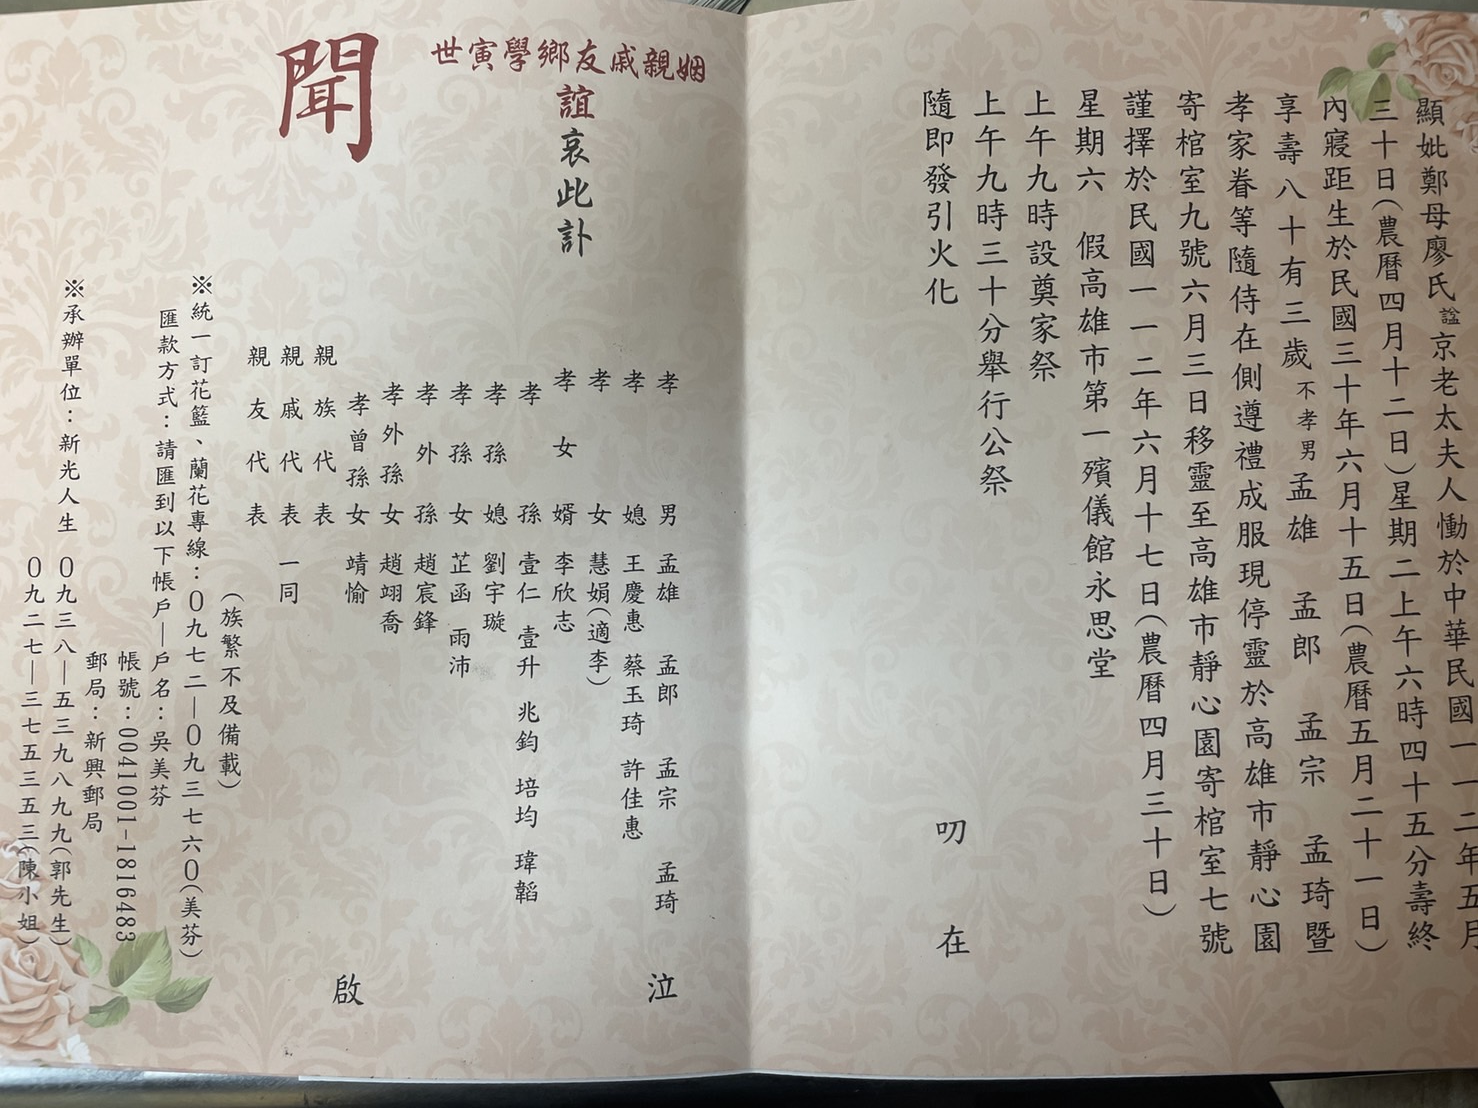 顯妣鄭母廖氏諡京老太夫人慟於中華民國一一二年五月
三十日(農曆四月十二日)星期二上午六時四十五分壽終
內寢距生於民國三十年六月十五日(農曆五月二十一日)
享壽八十有三歲不孝男孟雄 孟郎 孟宗 孟琦暨
孝家眷等隨侍在側遵禮成服現停靈於高雄市靜心園
寄棺室九號六月三日移靈至高雄市靜心園寄棺室七號
謹擇於民國一一二年六月十七日(農曆四月三十日)
星期六 假高雄市第一殯儀館永思堂
上午九時設奠家祭
上午九時三十分舉行公祭
隨即發引火化
叨在
姻親戚友鄉學寅世
誼哀此訃
聞
孝男 孟雄 孟郎 孟宗 孟琦 泣
孝媳 王慶惠 蔡玉琦 許佳惠
孝女 慧娟(適李)
孝女婿 李欣志
孝孫 壹仁 壹升 兆鈞 培均 瑋韜
孝孫媳 劉宇璇
孝孫女 芷函 雨沛
孝外孫 趙宸鋒
孝外孫女 趙翊喬
孝曾孫女 靖愉 啟
親族代表
親戚代表 一同
親友代表
(族繁不及備載)
※統一訂花籃、蘭花專線:0九七二—0九三七六0(美芬)
匯款方式:請匯到以下帳戶—戶名:吳美芬
帳號:0041001-1816483
郵局:新興郵局
※承辦單位:新光人生 0九三八—五三九八九九(郭先生)
0九二七—三七五三五三(陳小姐)